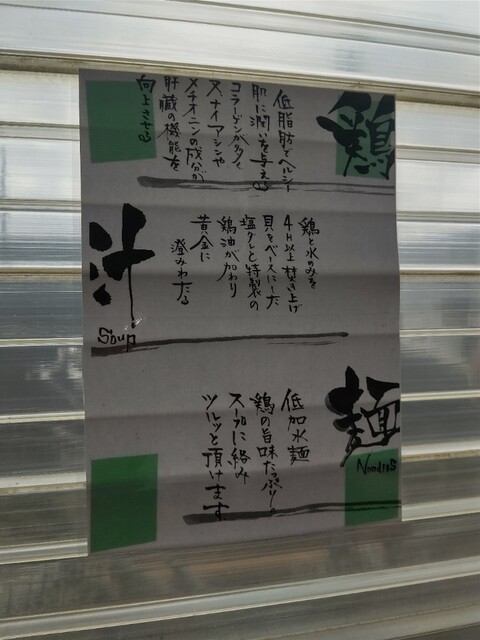 鶏
低脂肪でヘルシー
肌に潤いを与える
コラーゲンが多く
又ナイアシンや
メチオニンの成分が
肝臓の機能を
向上させる
汁
Soup
鶏と水のみを
4H以上焚き上げ
貝をベースにした
塩ダレと特製の
鶏油が加わり
黄金に
澄みわたる
麺
Noodles
低加水麺
鶏の旨味たっぷり。
スープに絡み
ツルッと頂けます